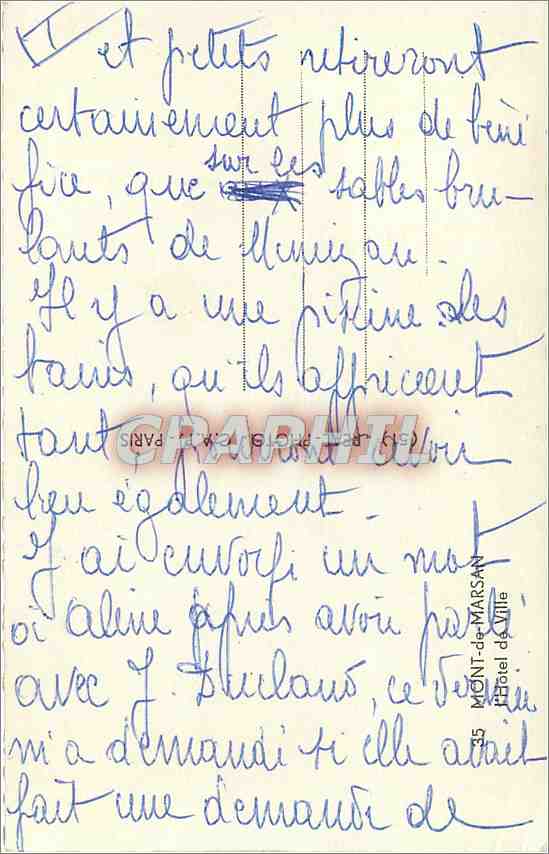 II
et petits retireront
certainement plus de béné
fice, que sur les sables bru-
lants de Mimizan.
Il y a une piscine. les
bains, qu'ils apprécient
tant, pourront avoir
lieu également.
J'ai envoyé un mot
à Aline après avoir parlé
avec J. ce dernier
m'a demandé si elle avait
fait une demande de
CPARPHIL
REAL-PHOTO C.A.P. - PARIS
35 MONT-de-MARSAN
l'Hôtel de Ville